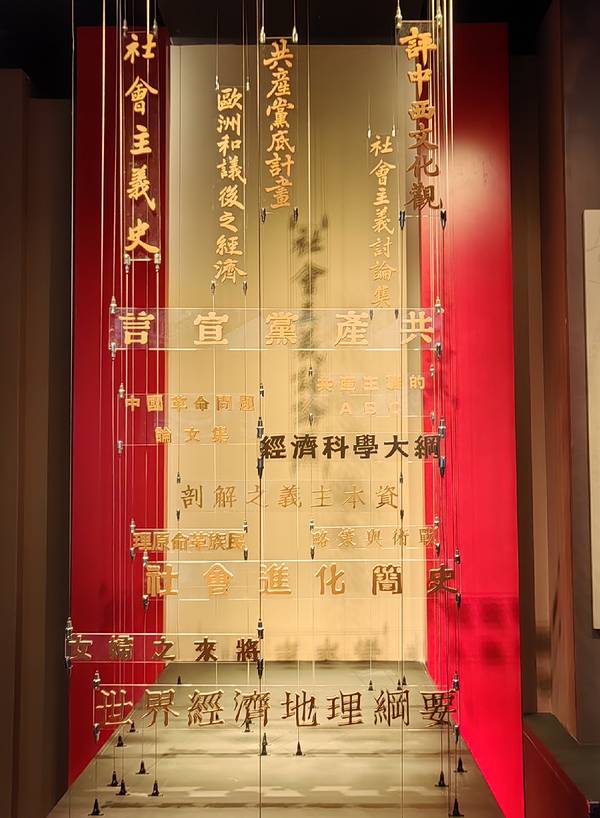 社會主義史
歐洲和議後之經濟
共產黨底計畫
社會主義討論集
評中西文化觀
共產黨宣言
中國革命問題
論文集
共產主義的
ABC
經濟科學大綱
資本主義之解剖
民族革命原理
戰術與策略
社會進化簡史
將來之婦女
世界經濟地理綱要